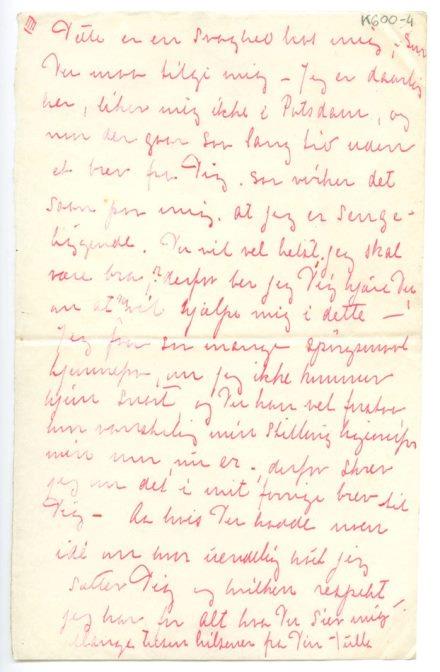 K600-4
III
Dette er en svaghed hos mig; som
Du maa tilgi mig – Jeg er daarlig
her, liker mig ikke i Potsdam, og
naar der gaar saa lang tid uden
et brev fra Dig. saa virker det
saan paa mig. at jeg er senge-
liggende. Du vil vel helst, jeg skal
være bra, derfor ber jeg Dig kjære Du
om at vil hjælpe mig i dette –
Jeg faar saa mange spörgsmaal
hjemmefra, om jeg ikke kommer
hjem snart og Du kan vel forstaa
hvor vanskelig min Stilling
men nu er; derfor skrev
jeg om det i mit forrige brev til
Dig – Aa hvis Du havde noen
idé om hvor uendelig höit jeg
sætter Dig og hvilken respekt
jeg har for alt hva Du sier mig
Mange tusen hilsener fra Din Tulla